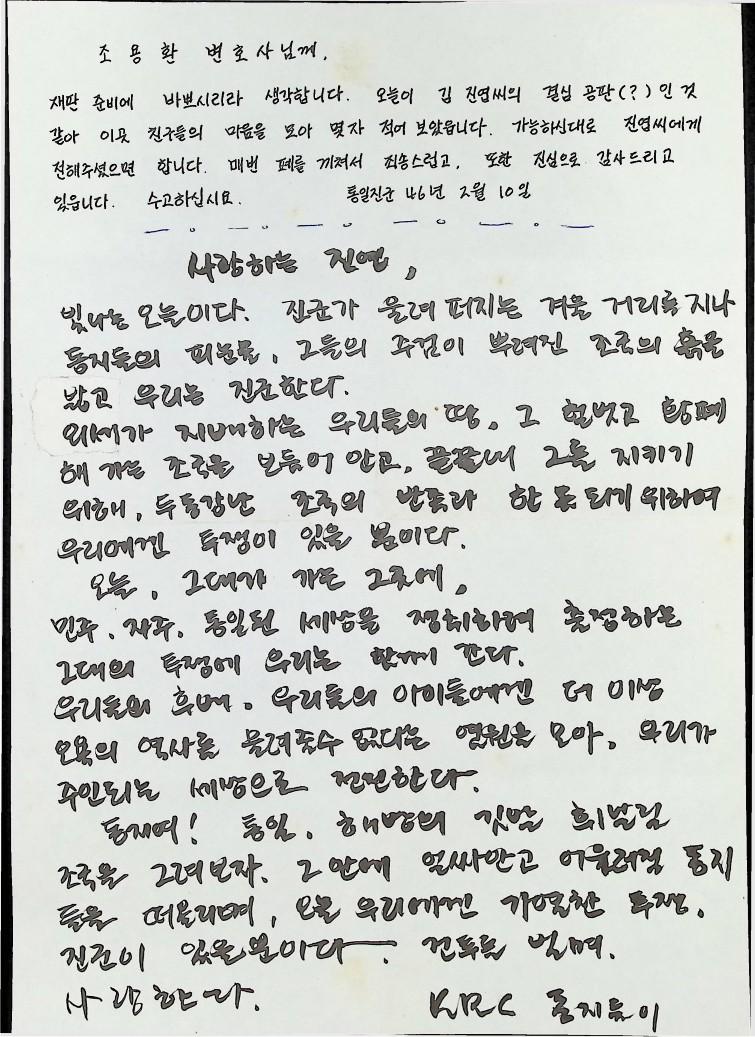 조용환 변호사님께,
재판 준비에 바쁘시리라 생각합니다. 오늘이 김 진엽씨의 결심 공판(?)인것
같아 이곳 친구들의 마음을 모아 몇자 적어 보았읍니다. 가능하신대로 진엽씨에게
전해주셨으면 합니다. 매번 폐를 끼쳐서 죄송스럽고, 또한 진심으로 감사드리고
있읍니다. 수고하십시요. 통일진군 46년 2월 10일
사랑하는 진엽,
빛나는 오늘이다. 진군가 울려 퍼지는 겨울 거리를 지나
동지들의 피눈물, 그들의 주검이 뿌려진 조국의 흙을
밟고 우리는 진군한다.
외세가 지배하는 우리들의 땅, 그 헐벗고 황폐
해 가는 조국을 보듬어 안고, 끝끝내 그를 지키기
위해, 두동강난 조국의 반쪽과 한 몸 되기 위하여
우리에겐 투쟁이 있을 뿐이다.
오늘, 그대가 가는 그곳에,
민주, 자주, 통일된 세상을 쟁취하려 출정하는
그대의 투쟁에 우리는 함께 간다.
우리들의 후배, 우리들의 아이들에겐 더 이상
오욕의 역사를 물려줄수 없다는 염원을 모아, 우리가
주인되는 세상으로 전진한다.
동지여! 통일, 해방의 깃발 휘날릴
조국을 그려보자. 그 안에 얼싸안고 어우러질 동지
들을 떠올리며, 오늘 우리에겐 가열찬 투쟁,
진군이 있을뿐이다. 건투를 빌며.
사랑한다. KRC 동지들이